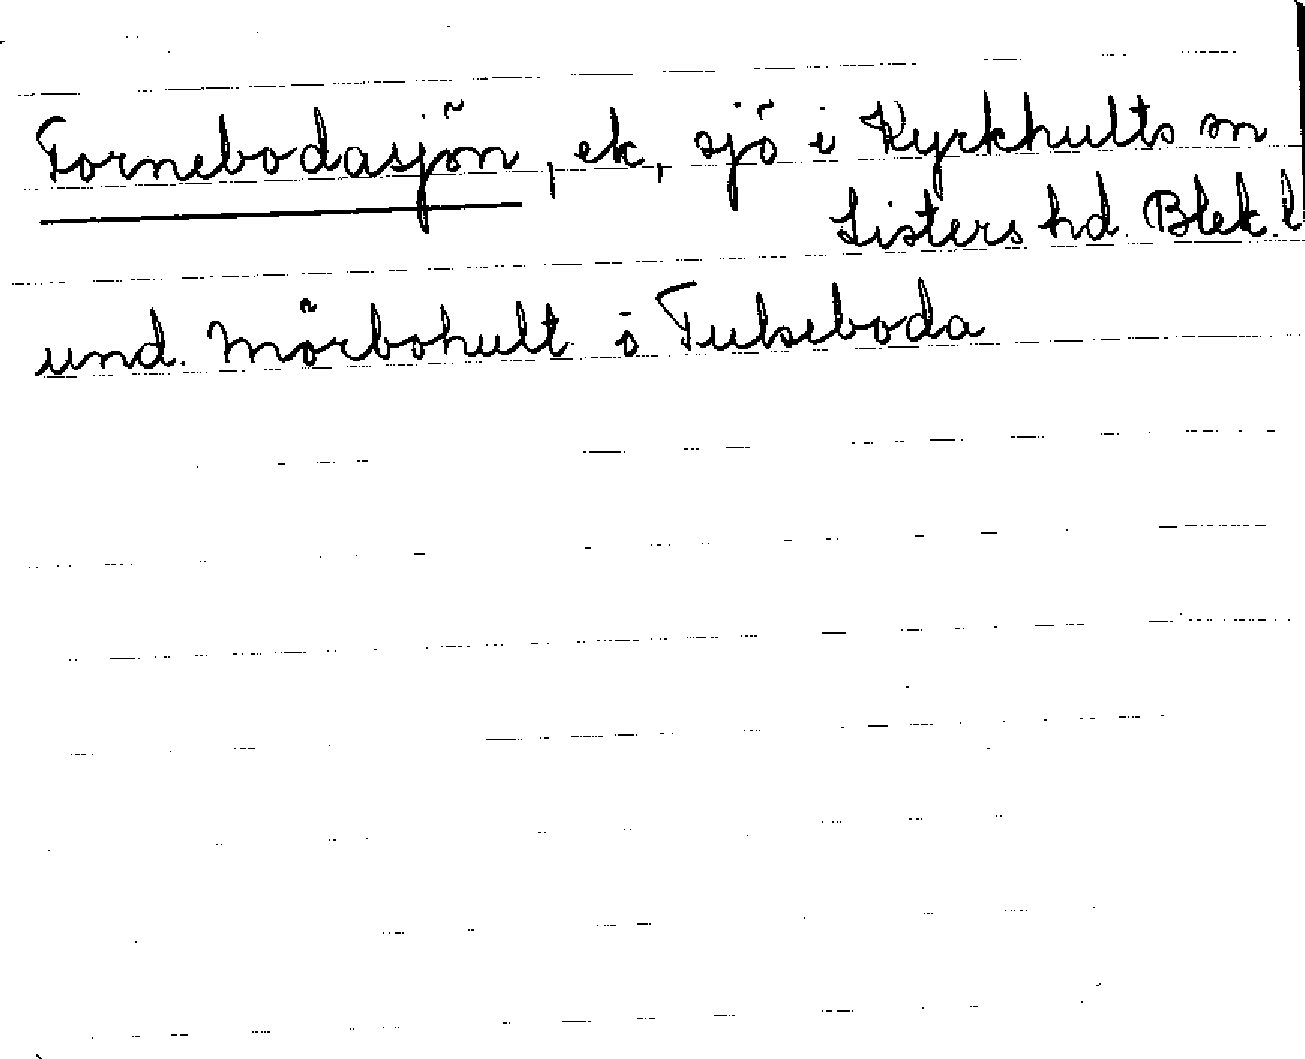 Tornebodasjön, ek, sjö i Kyrkhults sn
Listers hd. Blek. l
und. Mörbohult o Tulseboda